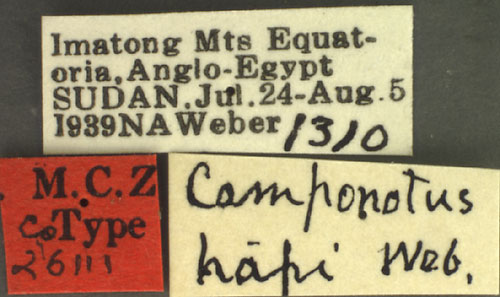 Imatong Mts Equat-
oria, Anglo-Egypt
SUDAN. Jul. 24-Aug. 5
1939 NA Weber 1310
M.C.Z
CoType
26111
Camponotus
hāpi Web.